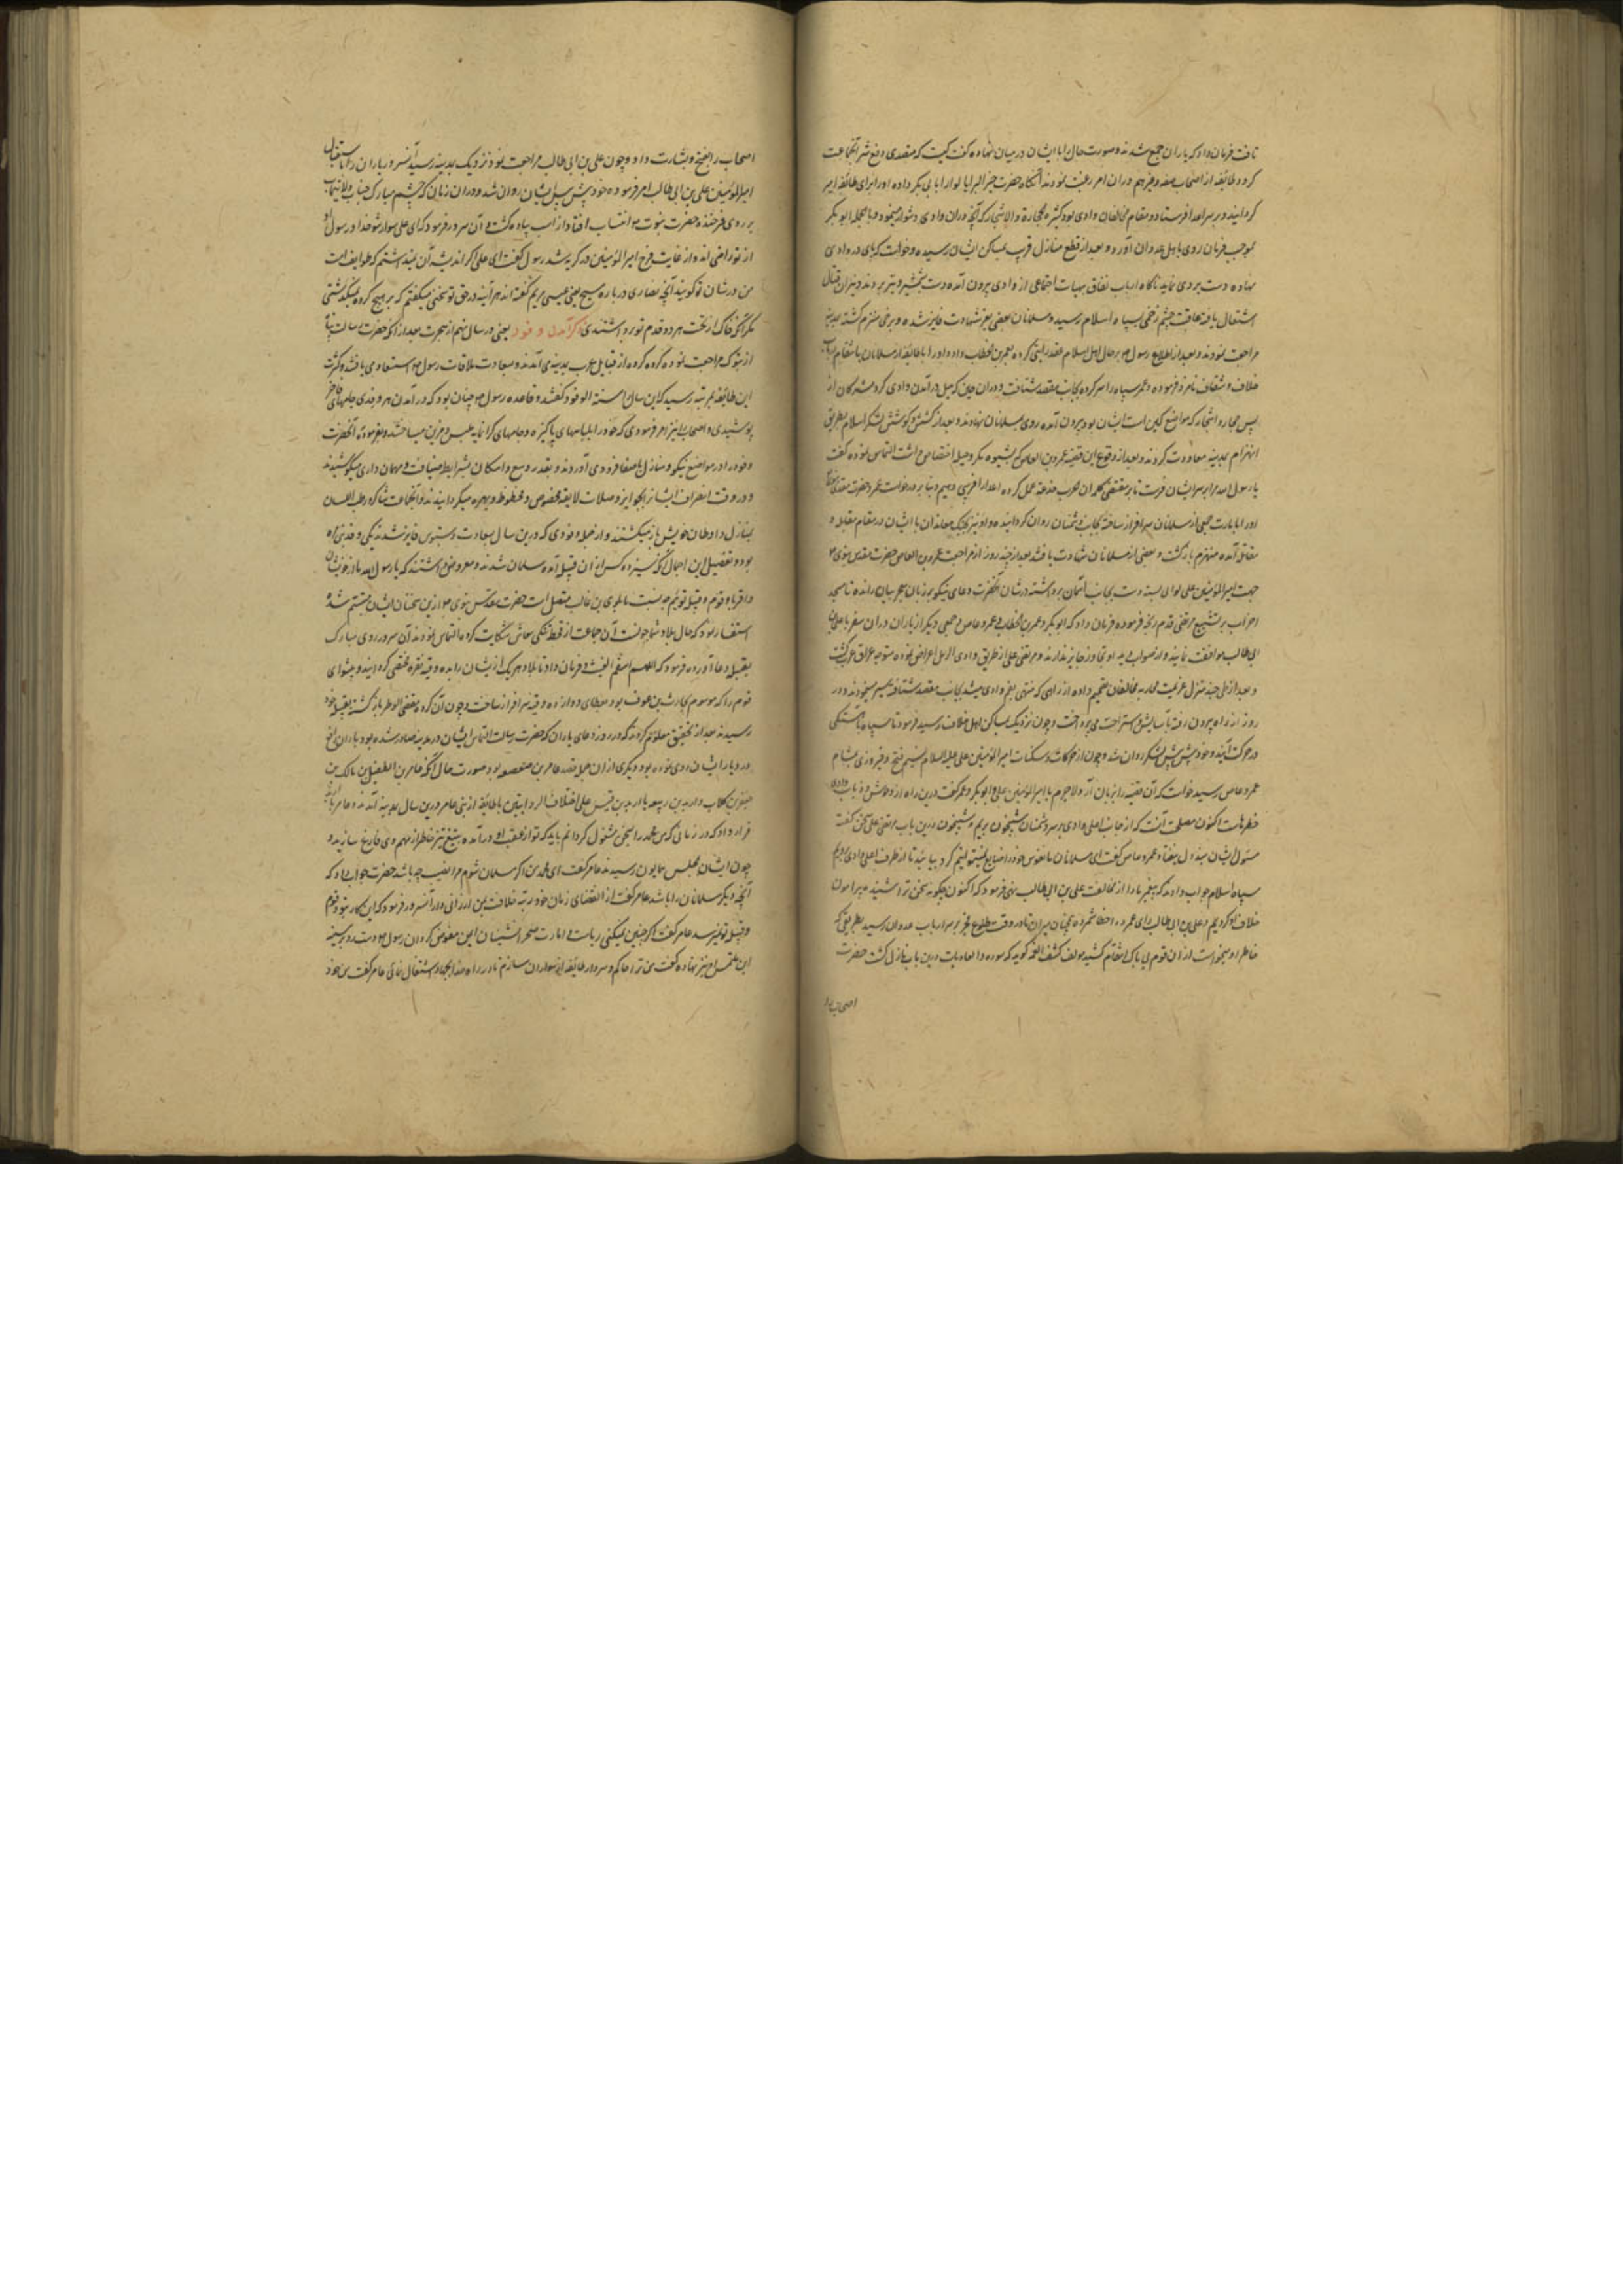 تافت فرمان داد که یاران جمع شدند و صورت حال را با ایشان در میان نهاده گفت کیست که متصدی دفع شر آنجماعت
کردد طایفه از اصحاب صفه و غیرهم دران امر رغبت نمودند آنگاه حضرت خیر البرایا لوا را بابی بکر داده او را برای طائفه امیر
کردانید و بر سر اعدا فرستاد و مقام مخالفان وادی بود کثیره الحجارة والاشجار که دران وادی دشوار مینمود و بالجمله ابو بکر
بموجب فرمان روی باهل عدوان آورد و بعد از قطع منازل قریب بمساکن ایشان رسیده و خواست که پای در وادی
نهاده دست بردی نماید ناگاه ارباب نفاق بهیات اجتماعی از وادی بیرون آمده دست بشمشیر و تیر بردند و بنیران قتال
اشتعال یافته عاقبت چشم زخمی بسپاه اسلام رسید و مسلمانان بعضی بعز شهادت فایز شده و برخی منهزم کشته بمدینه
مراجعت نمودند و بعد از اطلاع رسول بر حال اهل اسلام رایتی بعمر بن الخطاب داد و او را با طائفه از مسلمانان بانتقام ارباب
خلاف و شقاق نامزد فرموده و عمر سپاه را سر کرده بجانب مقصد شتافت و دران حین که میل در آمدن وادی کرد مشرکان از
پس حجاره و اشجار که مواضع کمین ایشان بود بیرون آمده روی بمسلمانان نهادند و بعد از کشش و کوشش لشکر اسلام بطریق
انهزام بمدینه معاودت کردند و بعد از وقوع این قضیه عمرو بن العاص که بشیوه مکر و حیله اختصاص داشت التماس نموده گفت
یا رسول الله مرا بر سر ایشان فرست تا بر مقتضی کلمه ان الحرب خدعة عمل کرده اعدا را فریبی دهیم و بنا بر درخواست عمرو حضرت مقدس
او را بامارت جمعی از مسلمانان سرافراز ساخته بجانب دشمنان روان کردانیده و او نیز بجنگ معاندان با ایشان در مقام مقابله و
مقاتله آمده منهزم بازگشت و بعضی از مسلمانان شهادت یافتند بعد از چند روز از مراجعت عمرو بن العاص حضرت مقدس نبوی
جهت امیر المؤمنین علی لوای بسته دست بجانب آسمان برداشته در شان آنحضرت دعای نیکو بر زبان معجز بیان رانده تا مسجد
احزاب بر تشییع مرتضی قدم رنجه فرموده فرمان داد که ابو بکر و عمر بن الخطاب و عمرو عاص و جمعی دیگر از یاران دران سفر با علی بن
ابی طالب موافقت نمایند و از صوابدید او تجاوز جایز ندارند و مرتضی علی از طریق وادی الرمل اعراض نموده متوجه عراق عرب گشت
و بعد از طی چند منزل عزیمت محاربه مخالفان تصمیم داده از راهی که منتهی بفم وادی میشد بجانب مقصد شتافته شب سیر مینمودند و در
روز از راه بیرون رفته بآسایش و استراحت می پرداخت و چون نزدیک بمساکن اهل خلاف رسید فرمود تا سپاه بآهستگی
در حرکت آیند و خود پیش پیش لشکر روان شد و چون از حرکات و سکنات امیر المؤمنین علی علیه السلام نسیم فتح و فیروزی بمشام
عمرو عاص رسید خواست که آن قضیه را بر هم زند لاجرم با امیر المؤمنین علی و ابو بکر و عمر گفت درین راه از وحوش و ذیاب وادی
خطرهاست اکنون مصلحت آنست که از جانب اعلی وادی بر سر دشمنان شبیخون بریم و شیخین درین باب با مرتضی علی سخن گفت
مسئول ایشان مبذول نیفتاد و عمرو عاص گفت ای مسلمانان ما نفوس خود را ضایع نمیتوانیم کرد بیائید تا از طرف اعلی وادی برویم
سپاه اسلام جواب دادند که پیغمبر ما را از مخالفت علی بن ابی طالب نهی فرموده اکنون چگونه سخن ترا شنیده پیرامون
خلاف او کردیم و علی بن ابی طالب رای عمرو را خطا شمرده همچنان میراند تا در وقت طلوع فجر بر سر ارباب عدوان رسید بطریقی که
خاطر او میخواست ازان قوم بی باک انتقام کشید مولف کشف الغمه گوید که سوره والعادیات درین باب نازل گشت حضرت
اصحاب را
اصحاب را بفتح و بشارت داد و چون علی بن ابی طالب مراجعت نموده نزدیک بمدینه رسید آن سرور یاران را باستقبال
امیر المؤمنین علی بن ابی طالب امر فرموده خود پیش پیش ایشان روان شد و دران زمان که چشم مبارک جناب ولایتماب
بر روی فرخنده حضرت نبوت انتساب افتاد از اسب پیاده گشت و آن سرور فرمود که ای علی سوار شو خدا و رسول او
از تو راضی اند و از غایت فرح امیر المؤمنین در گریه شد رسول گفت ای علی اگر اندیشه آن نمیداشتم که طوایف امت
من در شان تو گویند آنچه نصاری در باره مسیح یعنی عیسی مریم گفته اند هر آینه در حق تو سخنی میگفتم که بر هیچ گروه نمیگذشتی
مگر آنکه خاک از تحت هر دو قدم تو برداشتندی ذکر آمدن وفود یعنی در سال نهم از هجرت بعد از آنکه حضرت رسالت پناه
از تبوک مراجعت نموده گروه گروه از قبایل عرب بمدینه می آمدند و بسعادت ملاقات رسول استسعاد می یافتند و کثرت
این طایفه بمرتبه رسید که این سال را سنة الوفود گفتند و قاعده رسول چنان بود که در آمدن هر وفدی جامهای فاخر
پوشیدی و اصحاب را نیز امر فرمودی که خود را بلباسهای پاکیزه و جامهای گرانمایه ملبس و مزین میساختند و بفرموده آنحضرت
وفود را در مواضع نیکو و منازل با صفا فرود می آوردند و بقدر وسع و امکان بشرایط ضیافت و مهمان داری میکوشیدند
و در وقت انصراف ایشان را بجوایز و صلات لایقه مخصوص و محظوظ و بهره مند میگردانیدند و آنجماعت شاکر و رطب اللسان
بمنازل و اوطان خویش باز میگشتند و از جمله وفودی که درین سال بسعادت دستبوس فایز شدند یکی وفد بنی مره
بود و تفصیل این اجمال آنکه سیزده کس ازان قبیله آمده مسلمان شدند و معروض داشتند که یا رسول الله ما از خویشان
و اقرباء قوم و قبیله توئیم چه نسبت ما بلوی بن غالب متصل است حضرت مقدس نبوی ازین سخنان ایشان متبسم شده
استفسار نمود که حال بلاد شما چونست آن جماعت از قحط و تنگی معاش شکایت کرده التماس نمودند آن سرور روی مبارک
بقبله دعا آورده فرمود که اللهم اسقهم الغیث و فرمان داد تا بلال هریک از ایشان را بده وقیه نقره مخصوص گردانید و پیشوای
قوم را که موسوم بحارث بن عوف بود بعطای دوازده وقیه سرافراز ساخت و چون آن گروه مقضی الوطر باز گشته بقبیله خود
رسیدند بعد از تحقیق معلوم کردند که در روز دعای باران که حضرت رسالت التماس ایشان در مدینه صادر شده بود باران نافع
در دیار ایشان روی نموده بود و دیگری ازان جمله وفد عامر بن صعصعه بود و صورت حال آنکه عامر بن الطفیل بن مالک بن
جعفر بن کلاب و اربد بن ربیعه یا اربد بن قیس علی اختلاف الروایتین با طایفه از بنی عامر درین سال بمدینه آمدند و عامر با اربد
قرار داد که در زمانی که من محمد را بسخن مشغول گردانم باید که تو از عقب او در آمده بتیغ تیز خاطر از مهم وی فارغ سازید و
چون ایشان بمجلس همایون رسیدند عامر گفت ای محمد من اگر مسلمان شوم مرا نصیب چه باشد حضرت جواب داد که
آنچه دیگر مسلمانان را باشد عامر گفت از انقضای زمان خود رتبه خلافت بمن ارزانی دار آن سرور فرمود که این کار بتو و قوم
و قبیله تو نرسد عامر گفت اگر چنین نمیکنی ریاست و امارت صحرا نشینان بمن مفوض گردان رسول دست رد بر سینه
این ملتمس نیز نهاده گفت من ترا حاکم و سردار طائفه از سواران سازم تا در راه خدا بجهاد اشتغال نمائی عامر گفت من خود